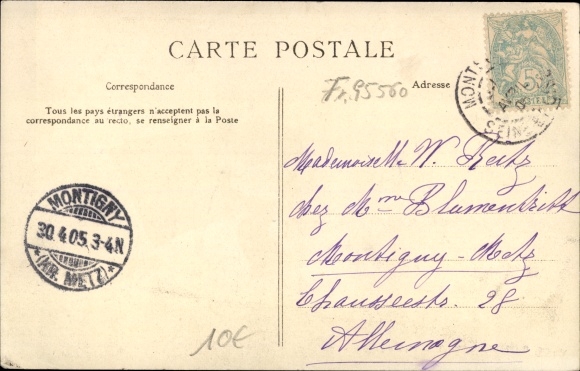 CARTE POSTALE
Correspondance
Adresse
Tous les pays étrangers n'acceptent pas la
correspondance au recto, se renseigner à la Poste
Fr. 95560
MONT
SEINE
5c
Mademoiselle W. Reitz
chez Mme Blumentritt
Montigny-Metz
Chausseestr. 28
Allemagne
MONTIGNY
30.4.05.3-4N
*(KR. METZ)*
10€